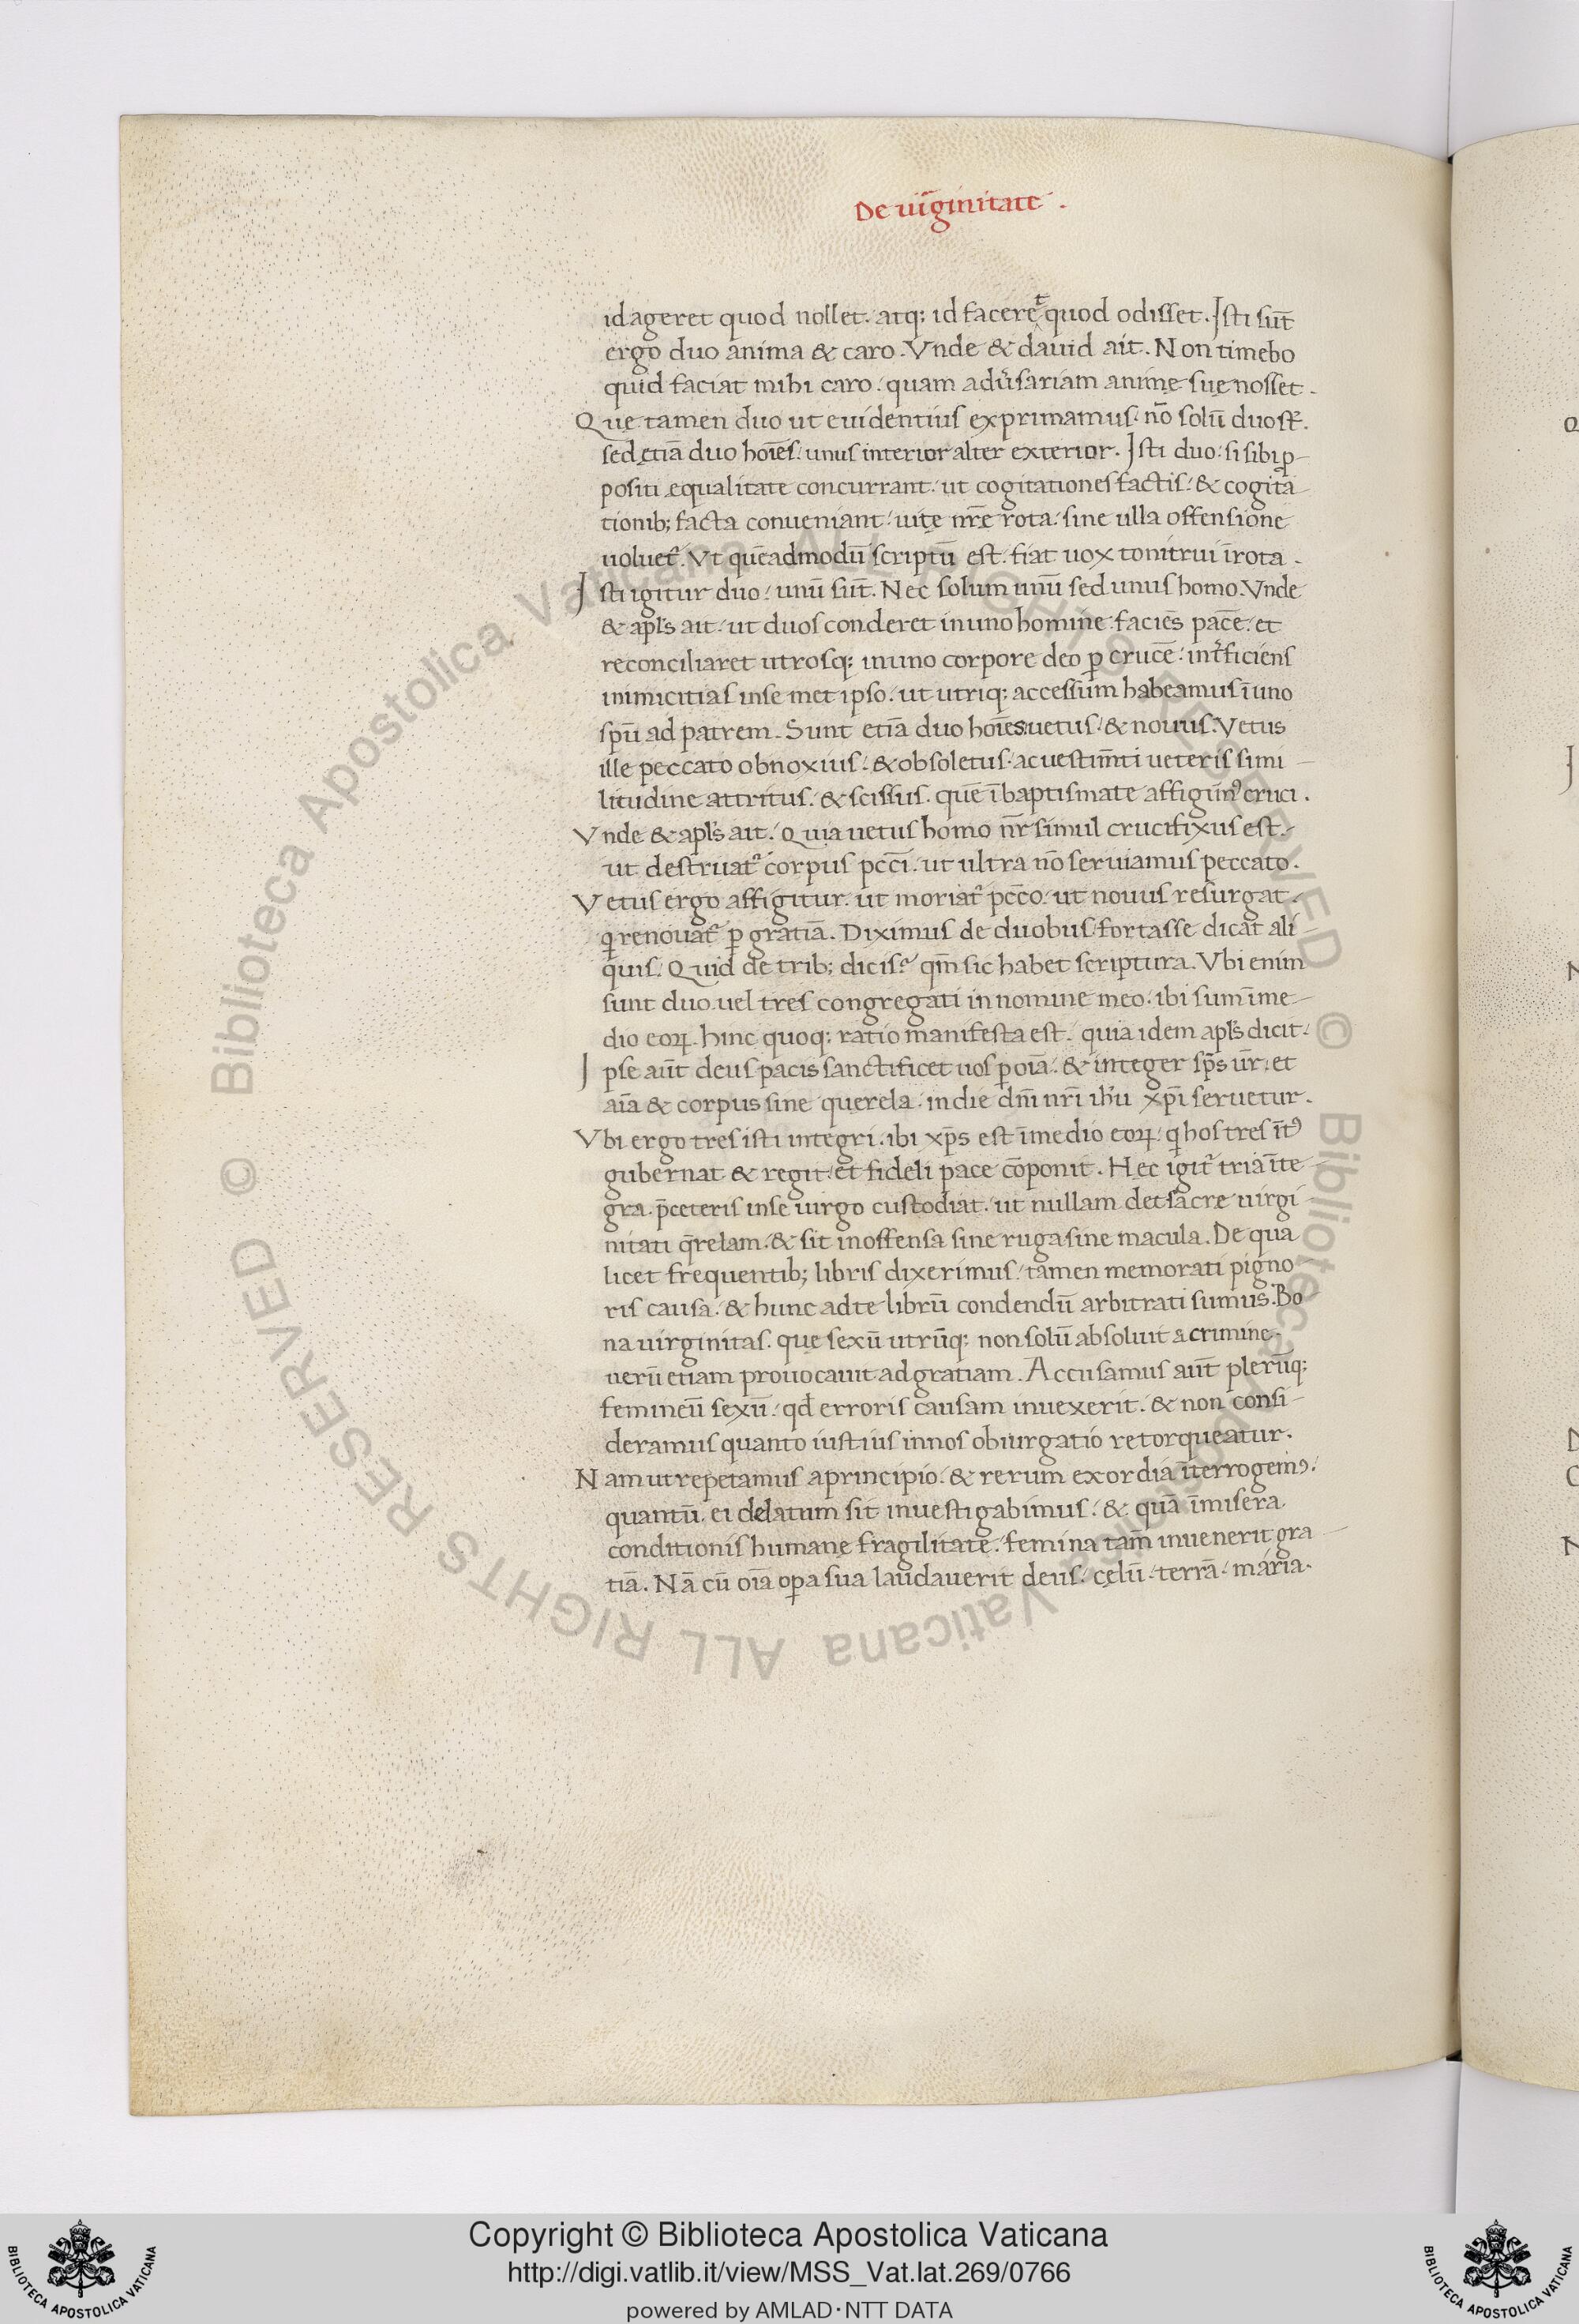 De uir̄ginitate .
id ageret quod nollet. atq; id facere^t quod odisset. Isti sūt
ergo duo anima & caro. Vnde & dauid ait. Non timebo
quid faciat mihi caro. quam adu̓sariam animę suę nosset.
Quę tamen duo ut euidentius exprimamus. nō solū duo sr̄.
sed ętiā duo hoīes. unus interior alter exterior. Isti duo. si sibi p̱
positi ęqualitate concurrant. ut cogitationes factis. & cogita
tionib; facta conueniant. uitę nr̄ę rota. sine ulla offensione
uoluet̓. Vt quēadmodū scriptū est. fiat uox tonitrui ī rota.
Isti igitur duo. unū sūt. Nec solum unū sed unus homo. Vnde
& apl's ait. ut duos conderet in uno homine. faciēs pacē. et
reconciliaret utrosq; in uno corpore deo p̱ crucē. int̓ficiens
inimicitias in se met ipso. ut utriq; accessum habeamus ī uno
spū ad patrem. Sunt etiā duo hoīes uetus. & nouus. Vetus
ille peccato obnoxius. & obsoletus. ac uestim̄ti ueteris simi
litudine attritus. & scissus. quē ī baptismate affigimꝰ cruci.
Vnde & apl's ait. Quia uetus homo nr̄ simul crucifixus est.
ut destruat̓ corpus pcc̄i. ut ultra nō seruiamus peccato.
Vetus ergo affigitur. ut moriat̓ pcc̄o. ut nouus resurgat.
q̇ renouat̓ p̱ gratiā. Diximus de duobus. fortasse dicat ali
quis. Quid de trib; dicis? qm̄ sic habet scriptura. Vbi enim
sunt duo uel tres congregati in nomine meo. ibi sum ī me
dio eoꝝ. hinc quoq; ratio manifesta est. quia idem apl's dicit.
Ipse aūt deus pacis sanctificet uos p̱ oīa. & integer sp̄s ur̄. et
aīa & corpus sine querela. in die dn̄i nr̄i ih'u xp̄i seruetur.
Vbi ergo tres isti integri. ibi xp̄s est ī medio eoꝝ. q̇ hos tres ītꝰ
gubernat & regit. et fideli pace cōponit. Hec igit̓ tria īte
gra. p̄ceteris in se uirgo custodiat. ut nullam det sacrę uirgi
nitati q̄relam. & sit inoffensa sine ruga sine macula. De qua
licet frequentib; libris dixerimus. tamen memorati pigno
ris causa. & hunc ad te librū condendū arbitrati sumus. Bo
na uirginitas. quę sexū utrūq; non solū absoluit a crimine.
uerū etiam prouocauit ad gratiam. Accusamus aūt plerūq;
femineū sexū. qđ erroris causam inuexerit. & non consi
deramus quanto iustius in nos obiurgatio retorqueatur.
Nam ut repetamus a principio. & rerum exordia īterrogemꝰ.
quantū ei delatum sit inuestigabimus. & quā ī misera
conditionis humanę fragilitate. femina tam̄ inuenerit gra
tiā. Nā cū oīa op̱a sua laudauerit deus. cęlū. terrā. maria.
© Biblioteca Apostolica Vaticana ALL RIGHTS RESERVED © Biblioteca Apostolica Vaticana ALL RIGHTS RESERVED
Copyright © Biblioteca Apostolica Vaticana
http://digi.vatlib.it/view/MSS_Vat.lat.269/0766
powered by AMLAD·NTT DATA
BIBLIOTECA APOSTOLICA VATICANA
BIBLIOTECA APOSTOLICA VATICANA